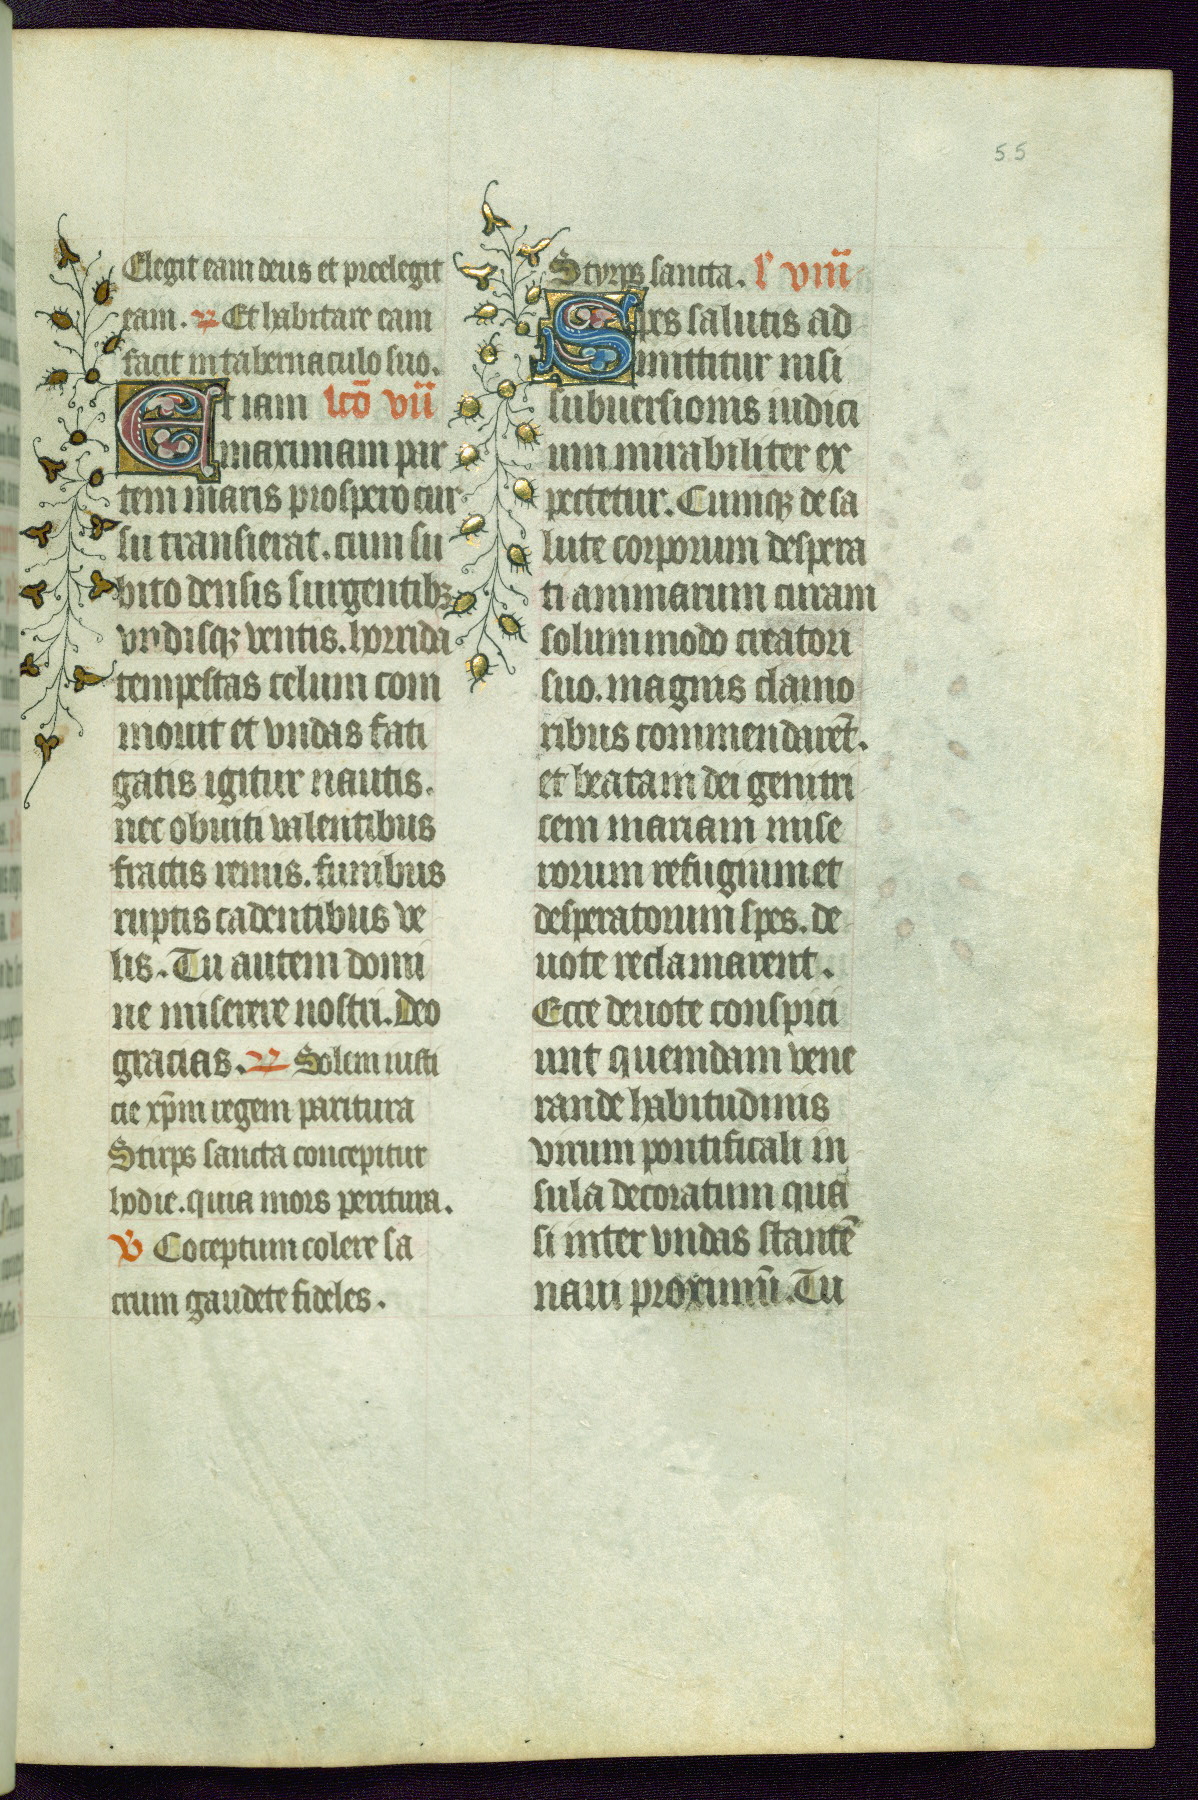 55
Elegit eam deus et preelegit
eam. ℟ Et habitare eam
facit in tabernaculo suo.
Et iam lcō vii
maximam par
tem maris prospero cur
su transierat. cum su
bito densis surgentibꝫ
vndisqꝫ ventis. horrida
tempestas celum com
mouit et vndas fati
gatis igitur nautis.
nec obuiti valentibus
fractis remis. funibus
ruptis cadentibus ve
lis. Tu autem domi
ne miserere nostri. Deo
gracias. ℟ Solem iusti
cie xp̄m regem paritura
Stirps sancta concepitur
hodie. quia mors peritura.
℣ Coceptum colere sa
crum gaudete fideles.
Styrps sancta. l' viii
Spes salutis ad
mittitur nisi
subuersionis iudici
um mirabiliter ex
pectetur. Cumqꝫ de sa
lute corporum despera
ti animarum curam
solummodo creatori
suo. magnis clamo
ribus commendarēt.
et beatam dei genitri
cem mariam mise
rorum refugium et
desperatorum spes. de
uote reclamarent.
Ecce deuote conspici
unt quemdam vene
rande habitudinis
virum pontificali in
sula decoratum qua
si inter vndas stantē
naui proximū. Tu